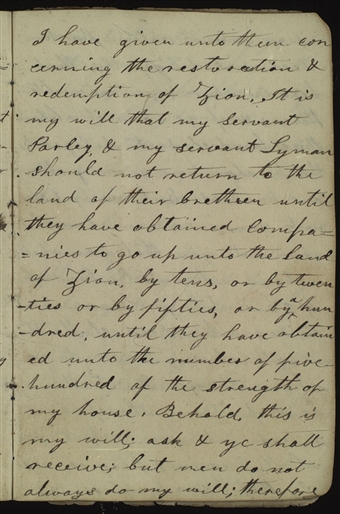 I have given unto them con
cerning the restoration &
redemption of Zion. It is
my will that my servant
Parley & my servant Lyman
should not return to the
land of their brethren until
they have obtained compa=
=nies to go up unto the land
of Zion, by tens, or by twen
-ties or by fifties, or by a hun
-dred, until they have obtain
ed unto the number of five
hundred of the strength of
my house. Behold, this is
my will; ask & ye shall
receive; but men do not
always do my will; therefore